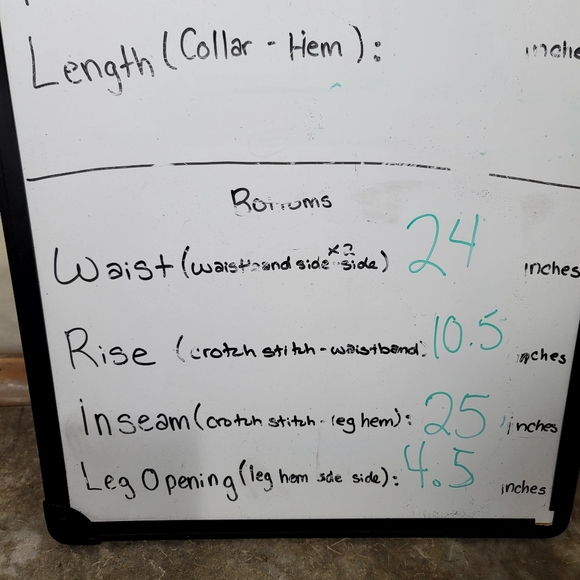 Length (Collar - Hem): inche
Bottoms
Waist (waistband side x2 side) 24 inches
Rise (crotch stitch - waistband): 10.5 inches
inseam (crotch stitch - leg hem): 25 inches
Leg Opening (leg hem side side): 4.5 inches